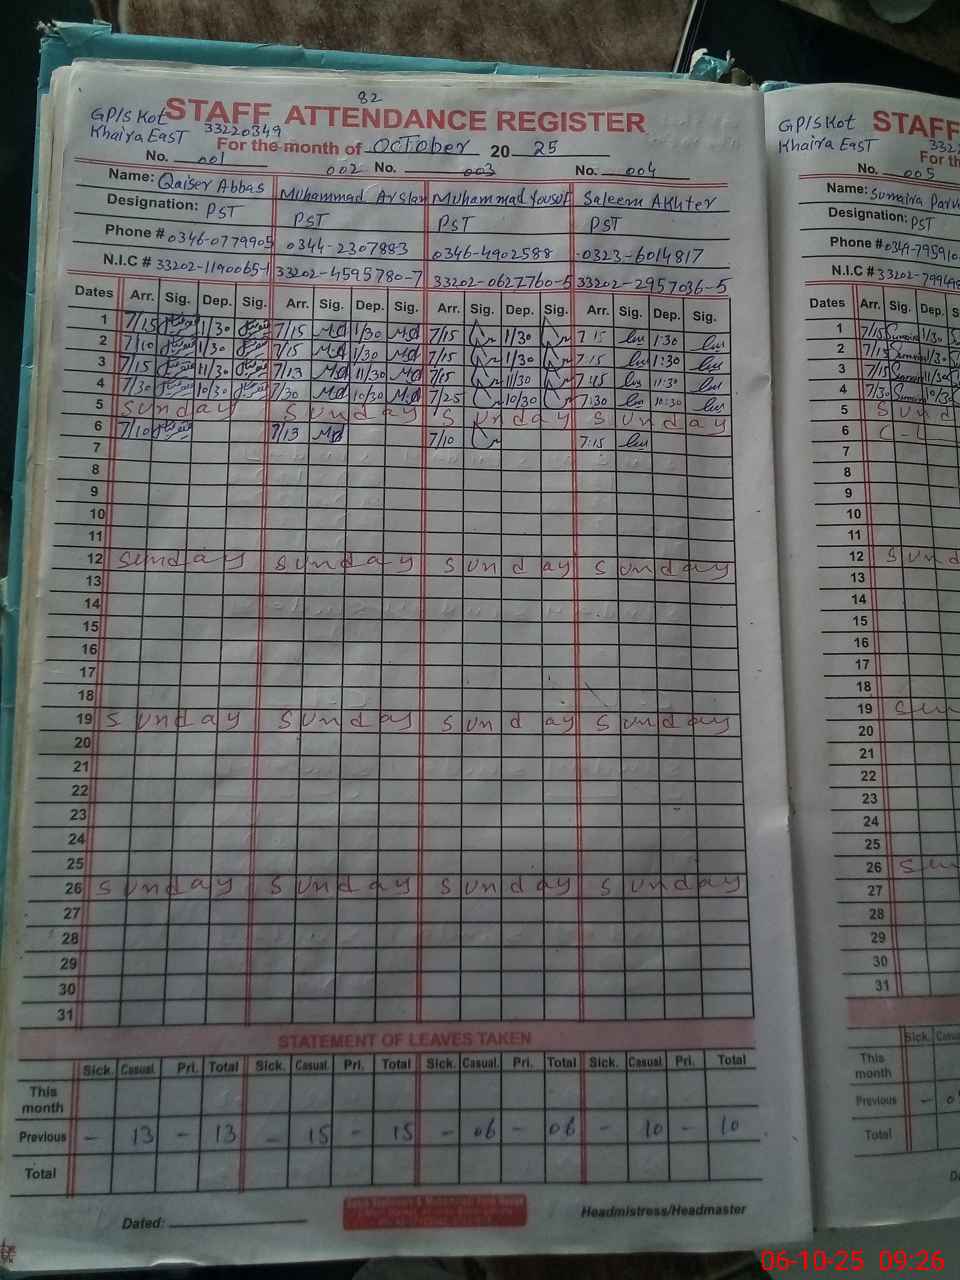 82
GP/S Kot STAFF ATTENDANCE REGISTER
Khaira EasT 33220349
For the month of OCTober 20 25
No. 001 002 No. 003 No. 004
Name: Qaiser Abbas Muhammad Arslan Muhammad Yousif Saleem Akhter
Designation: PST PST PST PST
Phone # 0346-0779905 0344-2307883 0346-4902588 0323-6014817
N.I.C # 33202-1190065-1 33202-4595780-7 33202-0627760-5 33202-2957036-5
Dates Arr. Sig. Dep. Sig. Arr. Sig. Dep. Sig. Arr. Sig. Dep. Sig. Arr. Sig. Dep. Sig.
1 7/15 1/30 7/15 Md 1/30 Md 7/15 1/30 7 15 1:30
2 7/10 1/30 7/15 Md 1/30 Md 7/15 1/30 7:15 1:30
3 7/15 11/30 7/13 Md 11/30 Md 7/15 11/30 7:15 11:30
4 7/30 10/30 7/30 Md 10/30 Md 7/25 10/30 7:30 10:30
5 Sunday Sunday Sunday Sunday
6 7/10 7/13 Md 7/10 7:15
7
8
9
10
11
12 Sunday Sunday Sunday Sunday
13
14
15
16
17
18
19 Sunday Sunday Sunday Sunday
20
21
22
23
24
25
26 Sunday Sunday Sunday Sunday
27
28
29
30
31
STATEMENT OF LEAVES TAKEN
Sick. Casual. Pri. Total Sick. Casual. Pri. Total Sick. Casual. Pri. Total Sick. Casual. Pri. Total
This month
Previous - 13 - 13 - 15 - 15 - 06 - 06 - 10 - 10
Total
Dated: Headmistress/Headmaster
GP/S Kot STAFF
Khaira EasT 332
For th
No. 005
Name: Sumaira Parv
Designation: PST
Phone # 0349-795910
N.I.C # 33202-799498
Dates Arr. Sig. Dep. S
1 7/15 1/30
2 7/15 1/30
3 7/15 11/30
4 7/30 10/30
5 Sund
6 C-L
7
8
9
10
11
12 Sund
13
14
15
16
17
18
19 Sun
20
21
22
23
24
25
26 Sun
27
28
29
30
31
Sick. Casu
This month
Previous - 0
Total
06-10-25 09:26